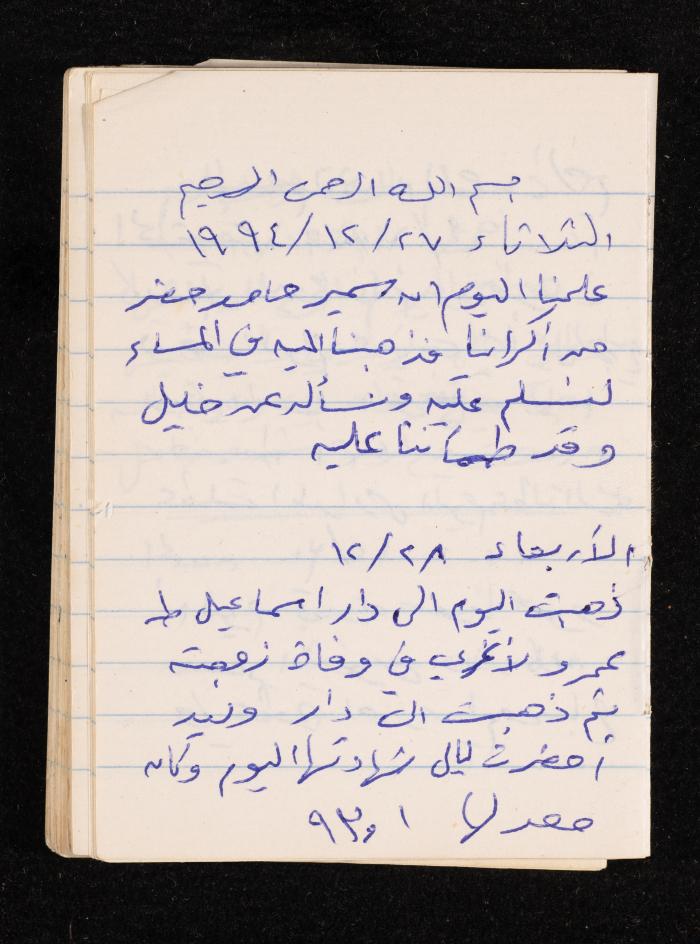 بسم الله الرحمن الرحيم
الثلاثاء ٢٧/١٢/١٩٩٤
علمنا اليوم ان سمير حامد حضر
من أكرانيا فذهبنا اليه في المساء
لنسلم عليه ونسأله عن خليل
وقد طمأننا عليه
الأربعاء ٢٨/١٢
ذهبت اليوم الى دار اسماعيل طه
عمرو لأعزي في وفاة زوجته
ثم ذهبت الى دار وليد
أحضرت ليال شهادتها اليوم وكان
معدلها ٩٣,١